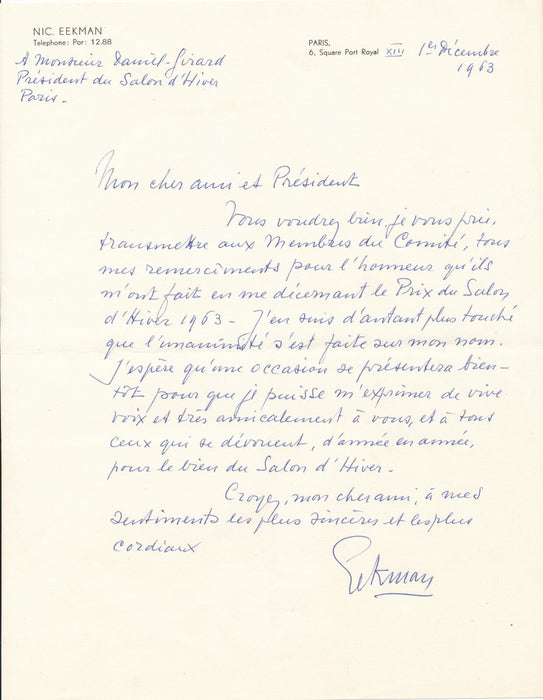 NIC. EEKMAN
Telephone: Por: 12.88
PARIS,
6, Square Port Royal XIII 1er Décembre
1963
A Monsieur Daniel-Girard
Président du Salon d'Hiver
Paris-
Mon cher ami et Président
Vous voudrez bien, je vous prie,
transmettre aux Membres du Comité, tous
mes remerciments pour l'honneur qu'ils
m'ont fait en me décernant le Prix du Salon
d'Hiver 1963 - J'en suis d'autant plus touché
que l'unanimité s'est faite sur mon nom.
J'espère qu'une occasion se présentera bien-
tôt pour que je puisse m'exprimer de vive
voix et très amicalement à vous, et à tous
ceux qui se dévouent, d'année en année,
pour le bien du Salon d'Hiver.
Croyez, mon cher ami, à mes
sentiments les plus sincères et les plus
cordiaux
Eekman